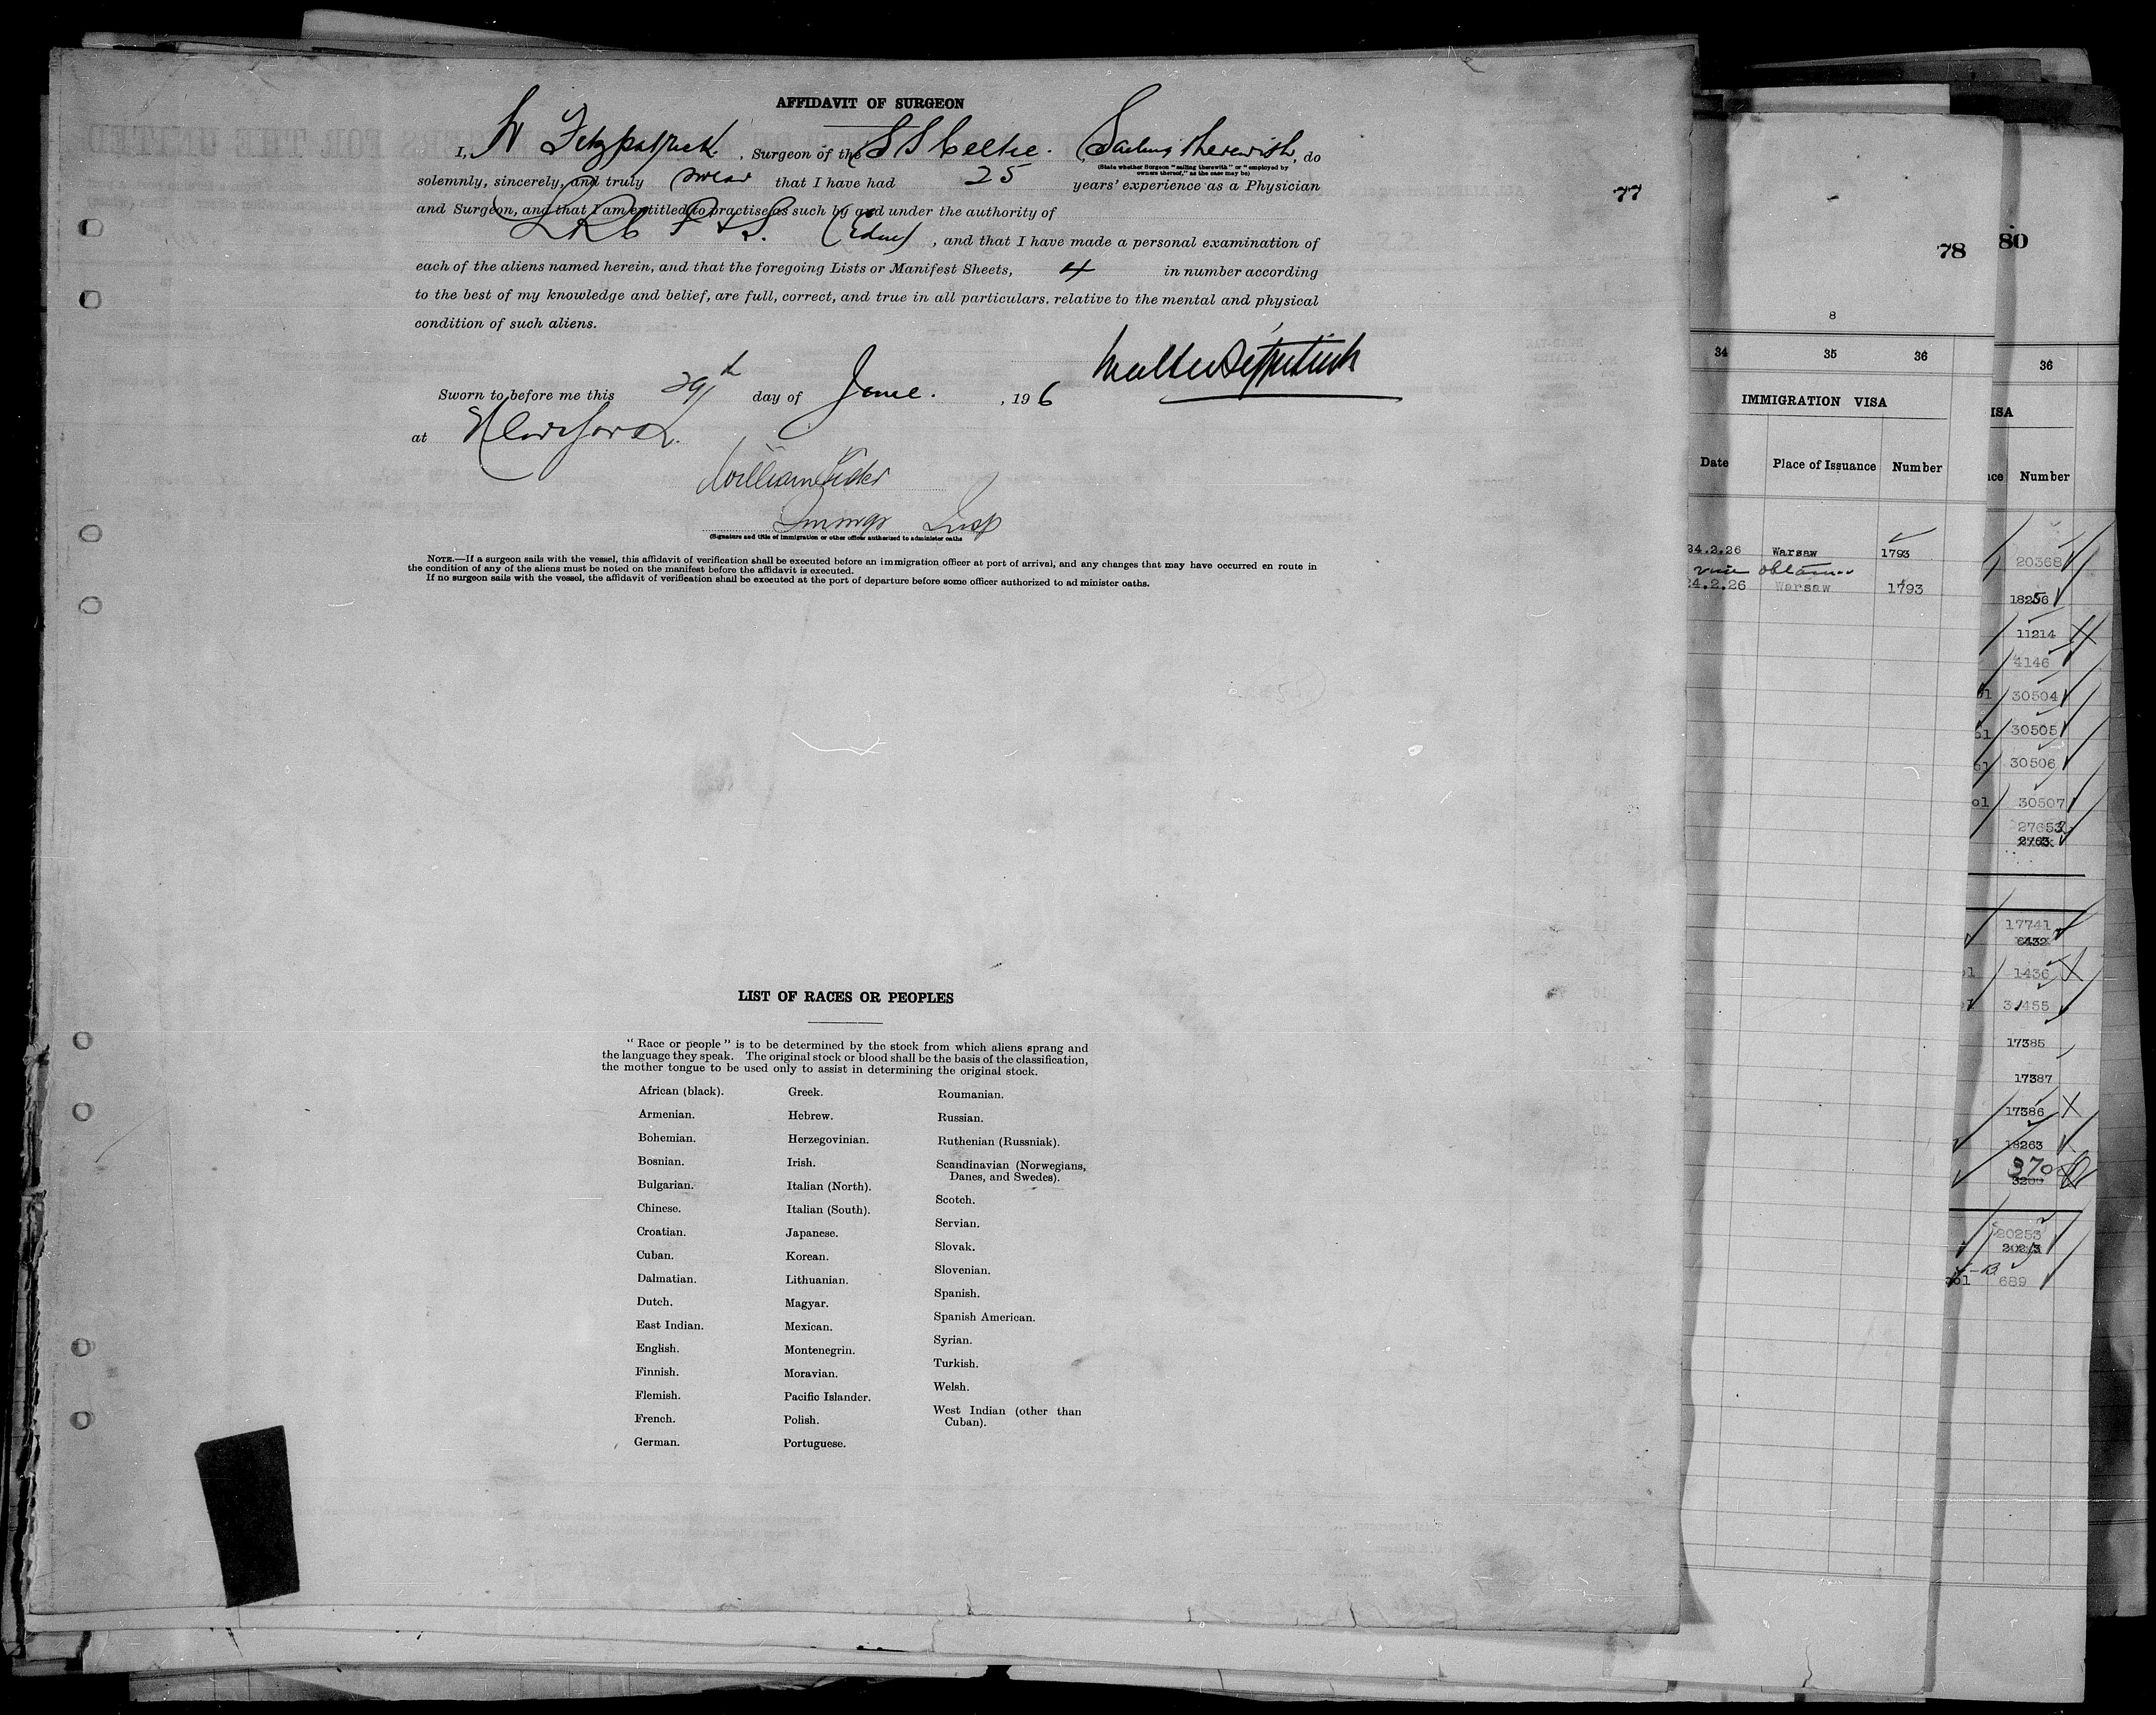 AFFIDAVIT OF SURGEON
I, W Fitzpatrick, Surgeon of the SS Celtic. Sailing therewith, do
(State whether Surgeon "sailing therewith" or "employed by
owners thereof," as the case may be)
solemnly, sincerely, and truly swear that I have had 25 years' experience as a Physician
and Surgeon, and that I am entitled to practise as such by and under the authority of
LRC P & S. (Edin), and that I have made a personal examination of
each of the aliens named herein, and that the foregoing Lists or Manifest Sheets, 4 in number according
to the best of my knowledge and belief, are full, correct, and true in all particulars. relative to the mental and physical
condition of such aliens.
Walter Fitzpatrick
Sworn to before me this 29th day of June. , 196
at New York.
William
Immigr Insp
(Signature and title of immigration or other officer authorized to administer oaths
NOTE.—If a surgeon sails with the vessel, this affidavit of verification shall be executed before an immigration officer at port of arrival, and any changes that may have occurred en route in
the condition of any of the aliens must be noted on the manifest before the affidavit is executed.
If no surgeon sails with the vessel, the affidavit of verification shall be executed at the port of departure before some officer authorized to administer oaths.
LIST OF RACES OR PEOPLES
"Race or people" is to be determined by the stock from which aliens sprang and
the language they speak. The original stock or blood shall be the basis of the classification,
the mother tongue to be used only to assist in determining the original stock.
African (black).
Armenian.
Bohemian.
Bosnian.
Bulgarian.
Chinese.
Croatian.
Cuban.
Dalmatian.
Dutch.
East Indian.
English.
Finnish.
Flemish.
French.
German.
Greek.
Hebrew.
Herzegovinian.
Irish.
Italian (North).
Italian (South).
Japanese.
Korean.
Lithuanian.
Magyar.
Mexican.
Montenegrin.
Moravian.
Pacific Islander.
Polish.
Portuguese.
Roumanian.
Russian.
Ruthenian (Russniak).
Scandinavian (Norwegians,
Danes, and Swedes).
Scotch.
Servian.
Slovak.
Slovenian.
Spanish.
Spanish American.
Syrian.
Turkish.
Welsh.
West Indian (other than
Cuban).
77
78
8
34 35 36
IMMIGRATION VISA
Date Place of Issuance Number
24.2.26 Warsaw 1793
24.2.26 Warsaw 1793
80
36
ISA
nce Number
20368
18256
11214
4146
ol 30504
ol 30505
ol 30506
ol 30507
27653
17741
6432
ol 1436
31455
17385
17387
17386
18263
370
3200
20253
ol 689